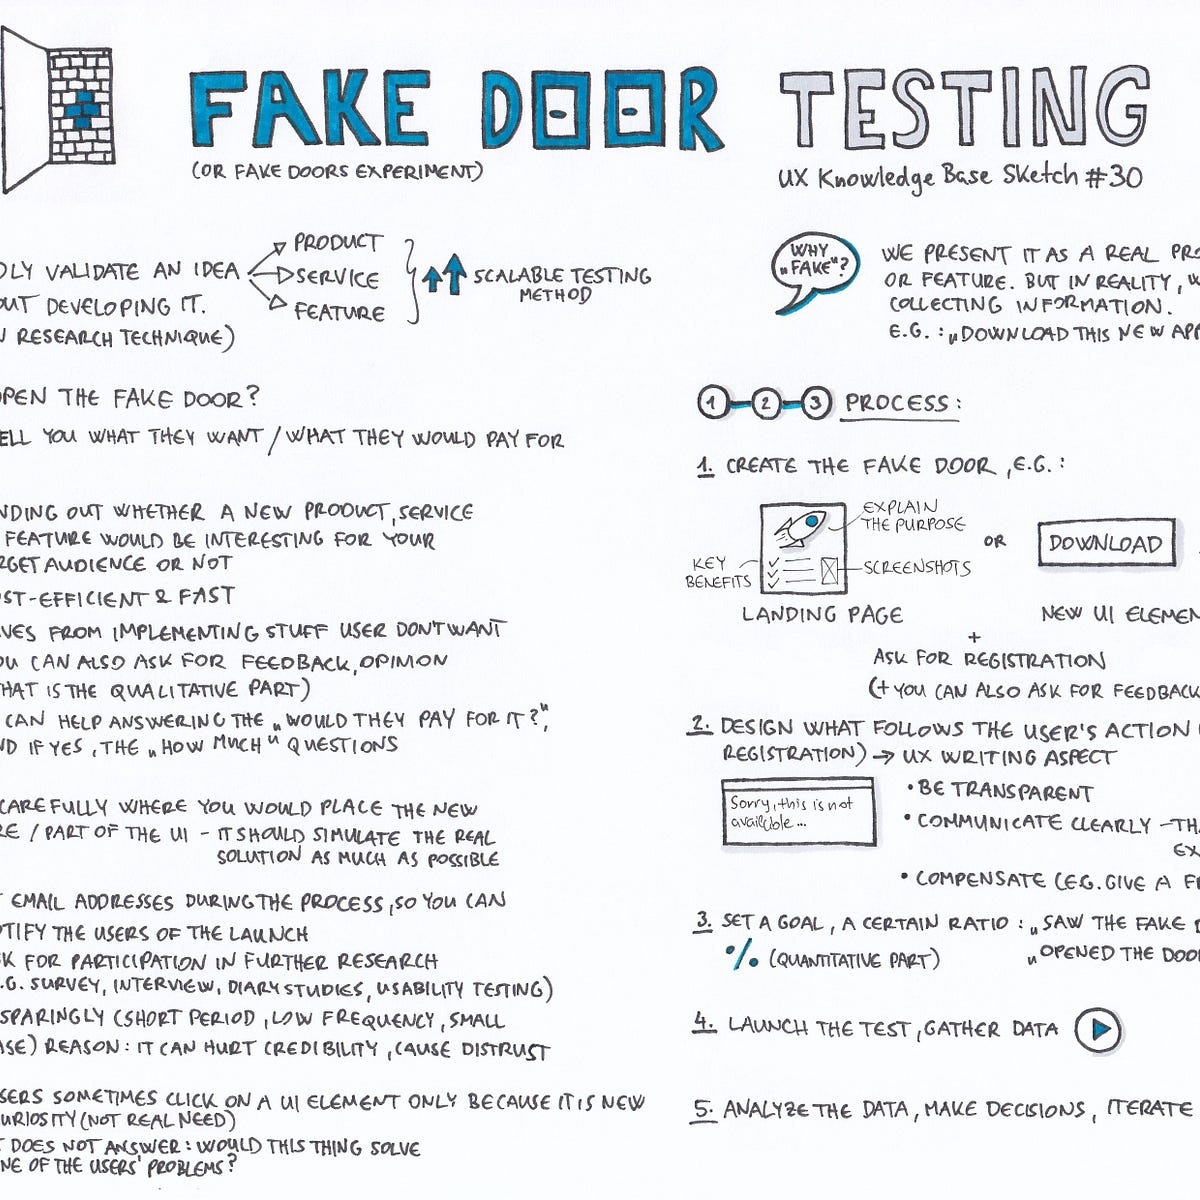 FAKE DOOR TESTING
(OR FAKE DOORS EXPERIMENT)
UX Knowledge Base Sketch #30
DLY VALIDATE AN IDEA
OUT DEVELOPING IT.
RESEARCH TECHNIQUE)
PRODUCT
SERVICE
FEATURE
SCALABLE TESTING
METHOD
OPEN THE FAKE DOOR?
ELL YOU WHAT THEY WANT / WHAT THEY WOULD PAY FOR
NDING OUT WHETHER A NEW PRODUCT, SERVICE
FEATURE WOULD BE INTERESTING FOR YOUR
RGET AUDIENCE OR NOT
ST-EFFICIENT & FAST
VES FROM IMPLEMENTING STUFF USER DON'T WANT
OU CAN ALSO ASK FOR FEEDBACK, OPINION
HAT IS THE QUALITATIVE PART)
CAN HELP ANSWERING THE „WOULD THEY PAY FOR IT?",
ND IF YES, THE „HOW MUCH" QUESTIONS
CAREFULLY WHERE YOU WOULD PLACE THE NEW
RE / PART OF THE UI - IT SHOULD SIMULATE THE REAL
SOLUTION AS MUCH AS POSSIBLE
T EMAIL ADDRESSES DURING THE PROCESS, SO YOU CAN
OTIFY THE USERS OF THE LAUNCH
SK FOR PARTICIPATION IN FURTHER RESEARCH
.G. SURVEY, INTERVIEW, DIARY STUDIES, USABILITY TESTING)
SPARINGLY (SHORT PERIOD, LOW FREQUENCY, SMALL
ASE) REASON: IT CAN HURT CREDIBILITY, CAUSE DISTRUST
SERS SOMETIMES CLICK ON A UI ELEMENT ONLY BECAUSE IT IS NEW
URIOSITY (NOT REAL NEED)
T DOES NOT ANSWER: WOULD THIS THING SOLVE
NE OF THE USERS' PROBLEMS?
WHY
„FAKE"?
WE PRESENT IT AS A REAL PRO
OR FEATURE. BUT IN REALITY, W
COLLECTING INFORMATION.
E.G.: „DOWNLOAD THIS NEW APP
1 2 3 PROCESS:
1. CREATE THE FAKE DOOR, E.G.:
EXPLAIN
THE PURPOSE
KEY
BENEFITS
SCREENSHOTS
LANDING PAGE
OR
DOWNLOAD
NEW UI ELEMEN
+
ASK FOR REGISTRATION
(+ YOU CAN ALSO ASK FOR FEEDBACK
2. DESIGN WHAT FOLLOWS THE USER'S ACTION (
REGISTRATION) → UX WRITING ASPECT
Sorry, this is not
available...
• BE TRANSPARENT
• COMMUNICATE CLEARLY - THA
EX
• COMPENSATE (E.G. GIVE A FR
3. SET A GOAL, A CERTAIN RATIO: „SAW THE FAKE D
% (QUANTITATIVE PART)
„OPENED THE DOOR
4. LAUNCH THE TEST, GATHER DATA
5. ANALYZE THE DATA, MAKE DECISIONS, ITERATE